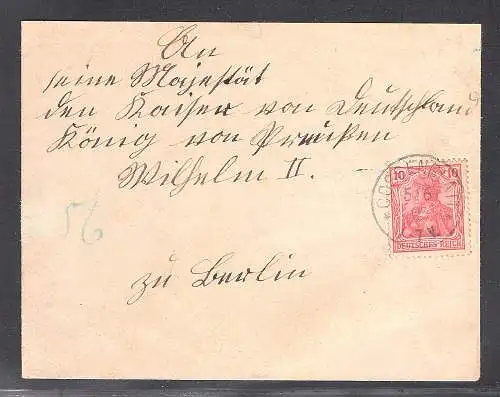 An
seine Majestät
den Kaiser von Deutschland
König von Preußen
Wilhelm II.
56
zu Berlin
10 10
DEUTSCHES REICH